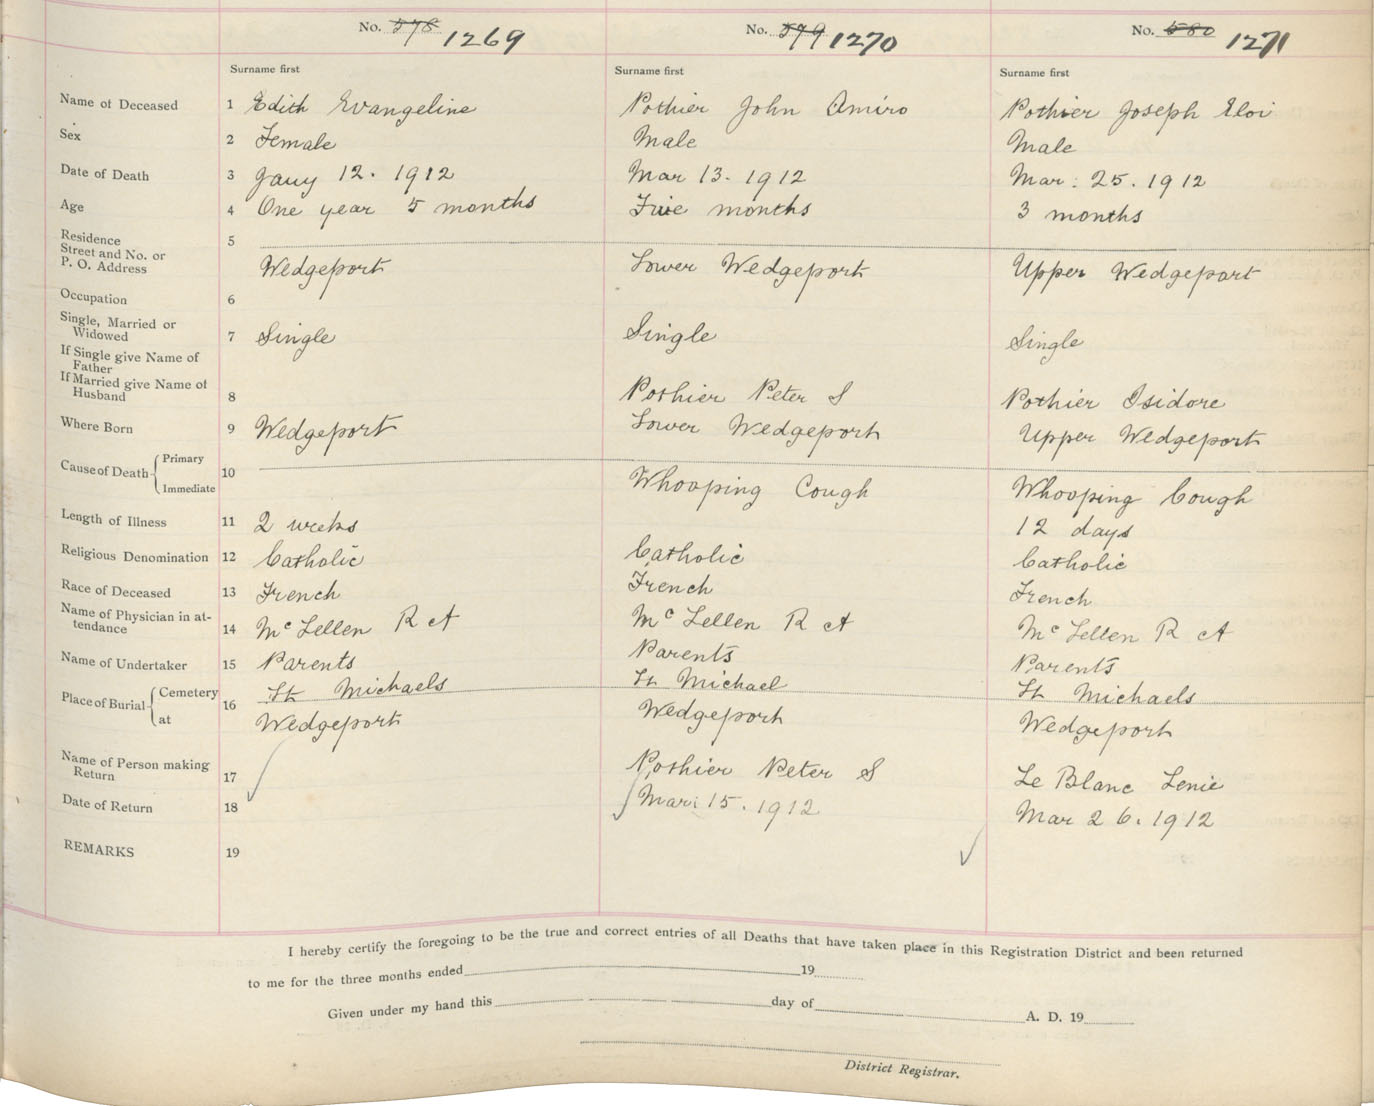 No. 578 1269 No. 579 1270 No. 580 1271
Surname first Surname first Surname first
Name of Deceased 1 Edith Evangeline Pothier John Amiro Pothier Joseph Eloi
Sex 2 Female Male Male
Date of Death 3 Jany 12. 1912 Mar 13. 1912 Mar: 25. 1912
Age 4 One year 5 months Five months 3 months
Residence
Street and No. or 5
P. O. Address Wedgeport Lower Wedgeport Upper Wedgeport
Occupation 6
Single, Married or
Widowed 7 Single Single Single
If Single give Name of
Father
If Married give Name of
Husband 8 Pothier Peter S Pothier Isidore
Where Born 9 Wedgeport Lower Wedgeport Upper Wedgeport
Cause of Death { Primary 10
Immediate Whooping Cough Whooping Cough
Length of Illness 11 2 weeks 12 days
Religious Denomination 12 Catholic Catholic Catholic
Race of Deceased 13 French French French
Name of Physician in at-
tendance 14 McLellen R A McLellen R A McLellen R A
Name of Undertaker 15 Parents Parents Parents
Place of Burial { Cemetery 16 St Michaels St Michael St Michaels
at Wedgeport Wedgeport Wedgeport
Name of Person making
Return 17 Pothier Peter S Le Blanc Lenie
Date of Return 18 Mar: 15. 1912 Mar 26. 1912
REMARKS 19
I hereby certify the foregoing to be the true and correct entries of all Deaths that have taken place in this Registration District and been returned
to me for the three months ended 19
Given under my hand this day of A. D. 19
District Registrar.